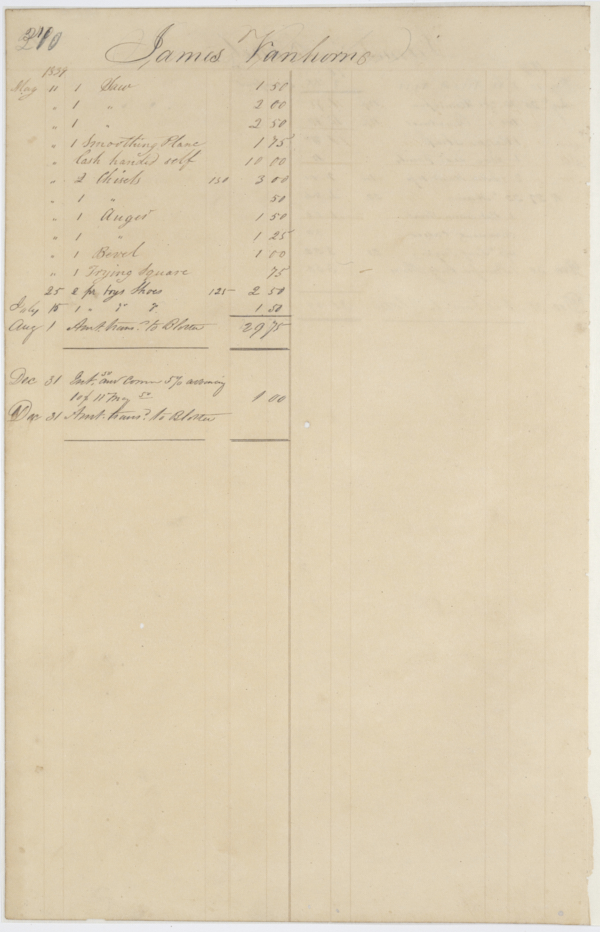 270
James Vanhorne
1839
May 11 1 Saw 1 50
" 1 " 2 00
" 1 " 2 50
" 1 Smoothing Plane 1 75
" Cash handed self 10 00
" 2 Chisels 150 3 00
" 1 " 50
" 1 Auger 1 50
" 1 " 1 25
" 1 Bevel 1 00
" 1 Trying Square 75
25 2 pr boys Shoes 125 2 50
July 15 1 " " " 1 50
Aug 1 Amt. trans.d to Blotter 29 75
Dec 31 Int. and Comn 5% assuming
1 of 11 May 1 00
Dec 31 Amt. trans.d to Blotter